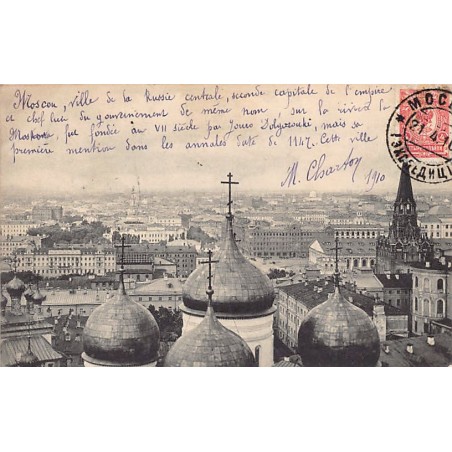 Moscou, ville de la Russie centrale, seconde capitale de l'empire
et chef lieu du gouvernement de même nom, sur la rivière la
Moskova, fut fondée au VII siècle par Joury Dolgorouki, mais sa
première mention dans les annales date de 1147. Cette ville
M. Charton 1910
МОС
ЭКСПЕДИЦ